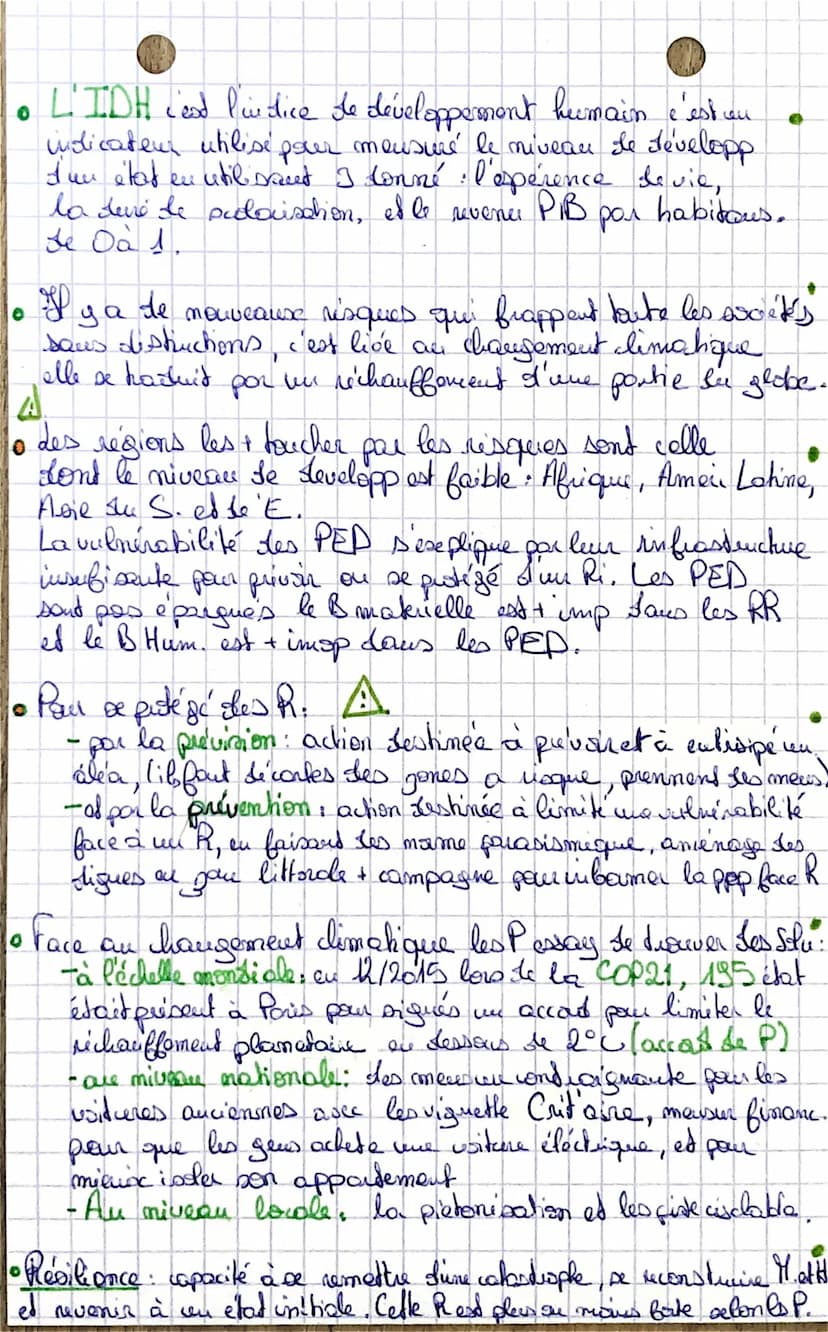 • L'IDH c'est l'indice de développement humain c'est un
indicateur utilisé pour mesuré le niveau de développ
d'un état en utilisant 3 donné : l'espérence de vie,
la duré de scolarisation, et le revenu PIB par habitans.
de 0 à 1.
• Il y a de nouveaux risques qui frappent toute les sociétés
sans distinctions, c'est liée au changement climatique
elle se traduit par un réchauffement d'une partie du globe.
• des régions les + toucher par les risques sont celle
dont le niveau de developp est faible : Afrique, Ameri Latine,
Asie du S. et de E.
La vulnérabilité des PED s'explique par leur infrastructure
insufisante pour prévoir ou se protégé d'un Ri. Les PED
sont pas épargnés le B matérielle est + imp dans les RR
et le B Hum. est + imp dans les PED.
• Pour se protégé des R:
- par la prévision : action destinée à prévoir et à entisipé un
aléa, (il faut décartes des zones a risque, prennent des mesus)
- et par la prévention : action destinée à limité une vulnérabilité
face à un R, en faisant des norme parasismique, aménage des
digues au zone littorale + campagne pour informer la ppp face R
• Face au changement climatique les P essay de trouver des Solu :
- à l'échelle mondiale : en 12/2015 lors de la COP21, 195 état
était présent à Paris pour signés un accord pour limiter le
réchauffement planetaire au dessous de 2°C (accord de P)
- au niveau nationale : des mesure contraignante pour les
voitures anciennes avec les vignette Crit'aire, mesur financ.
pour que les gens achete une voiture éléctrique, et pour
mieux isoler son appartement
- Au niveau locale : la pietonisation et les piste ciclable.
• Résilience : capacité à se remettre d'une catastrophe, se reconstruire M. et H
et revenir à un état initiale. Cette R est plus ou moins forte selon les P.